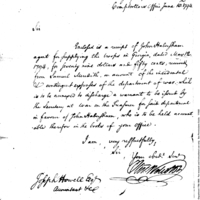 Comptrollers Office June 10. 1794
Sir
Enclosed is a receipt of John Habersham
agent for supplying the troops in Georgia, dated
1794, for seventy nine dollars and fifty cents, received
from Samuel on account of the incidental
and contingent expenses of the department of war, which
is to be recorded to discharge a warrant to be issued by
the Secretary at war on the Treasurer for said department
in favour of John Habersham, who is to be held account
able therefor in the books of your office.
I am, very respectfully,
Sir
Your Obedt Servt
Joseph Howell Esqr
Accountant &ca